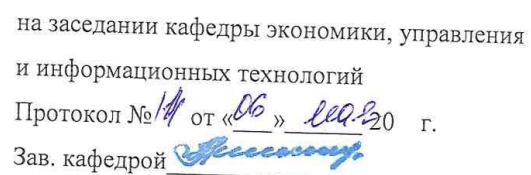 на заседании кафедры экономики, управления
и информационных технологий
Протокол № от «06» мая 20 г.
Зав. кафедрой